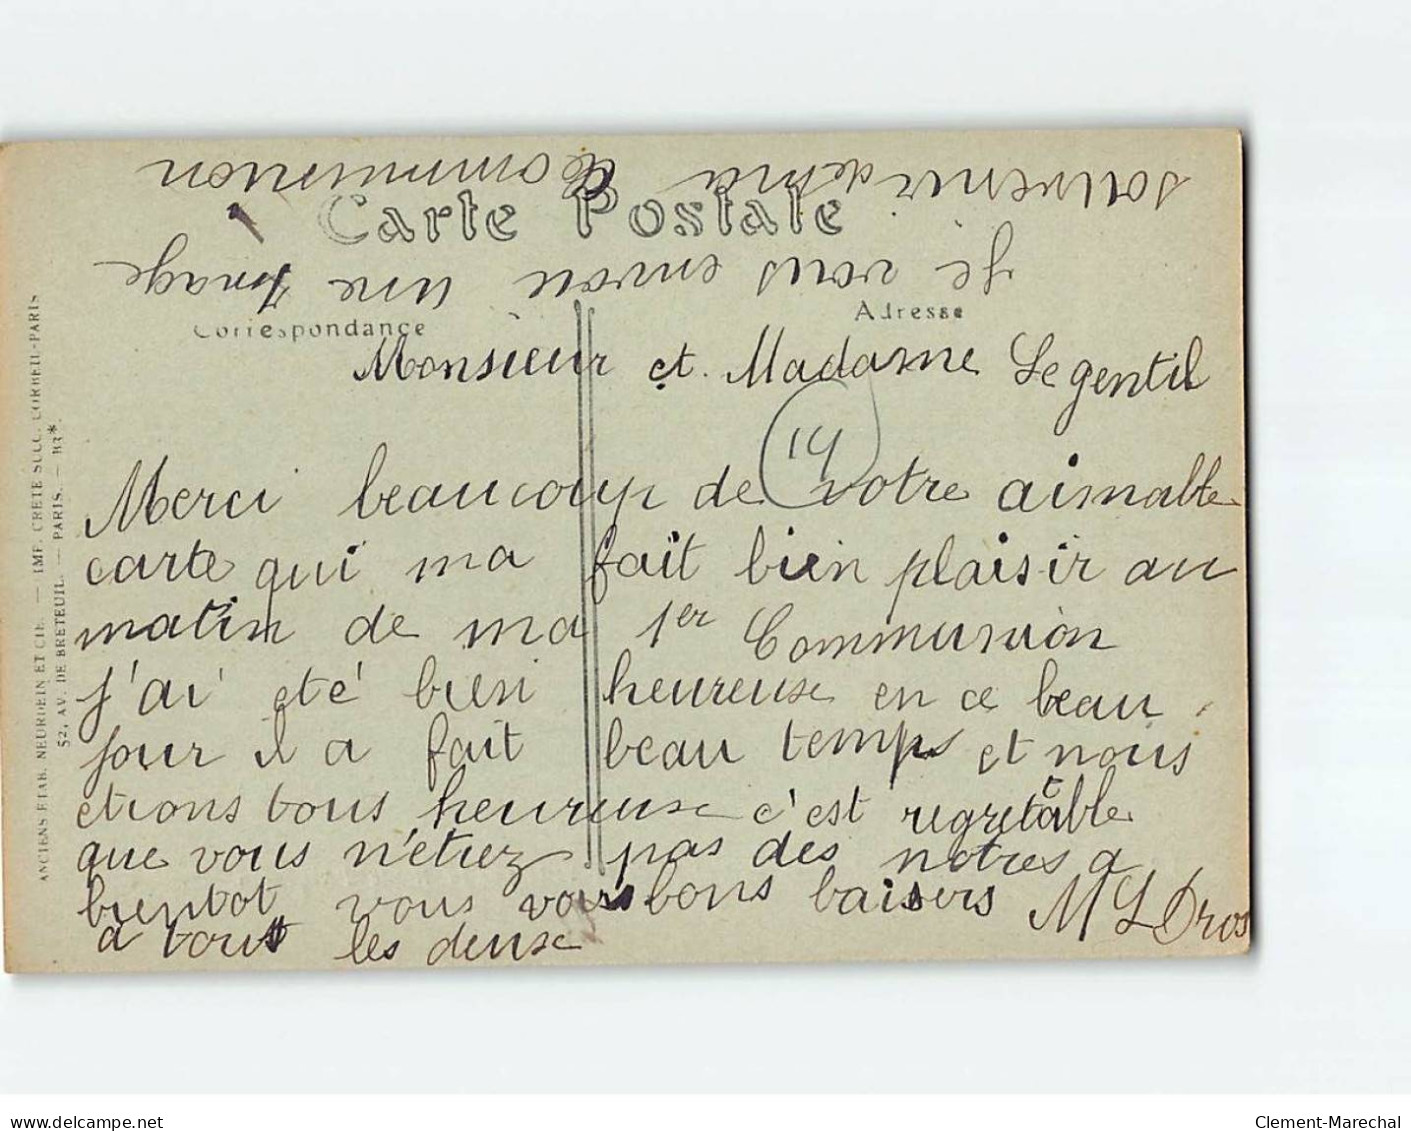 Carte Postale
Correspondance
Adresse
Je vous envoie une Image
souvenir de ma Communion
Monsieur et. Madame Legentil
14
Merci beaucoup de votre aimable
carte qui ma fait bien plaisir au
matin de ma 1er Communion
j'ai eté bien heureuse en ce beau
jour il a fait beau temps et nous
etions tous heureuse c'est regretable
que vous n'étiez pas des notres a
bientot vous voir bons baisers M L Dros
a tous les deux
ANCIENS ETAB. NEURDEIN ET CIE. — IMP. CRÉTÉ SUCC. CORBEIL-PARIS
52, AV. DE BRETEUIL. — PARIS. — B3*.
www.delcampe.net
Clement-Marechal